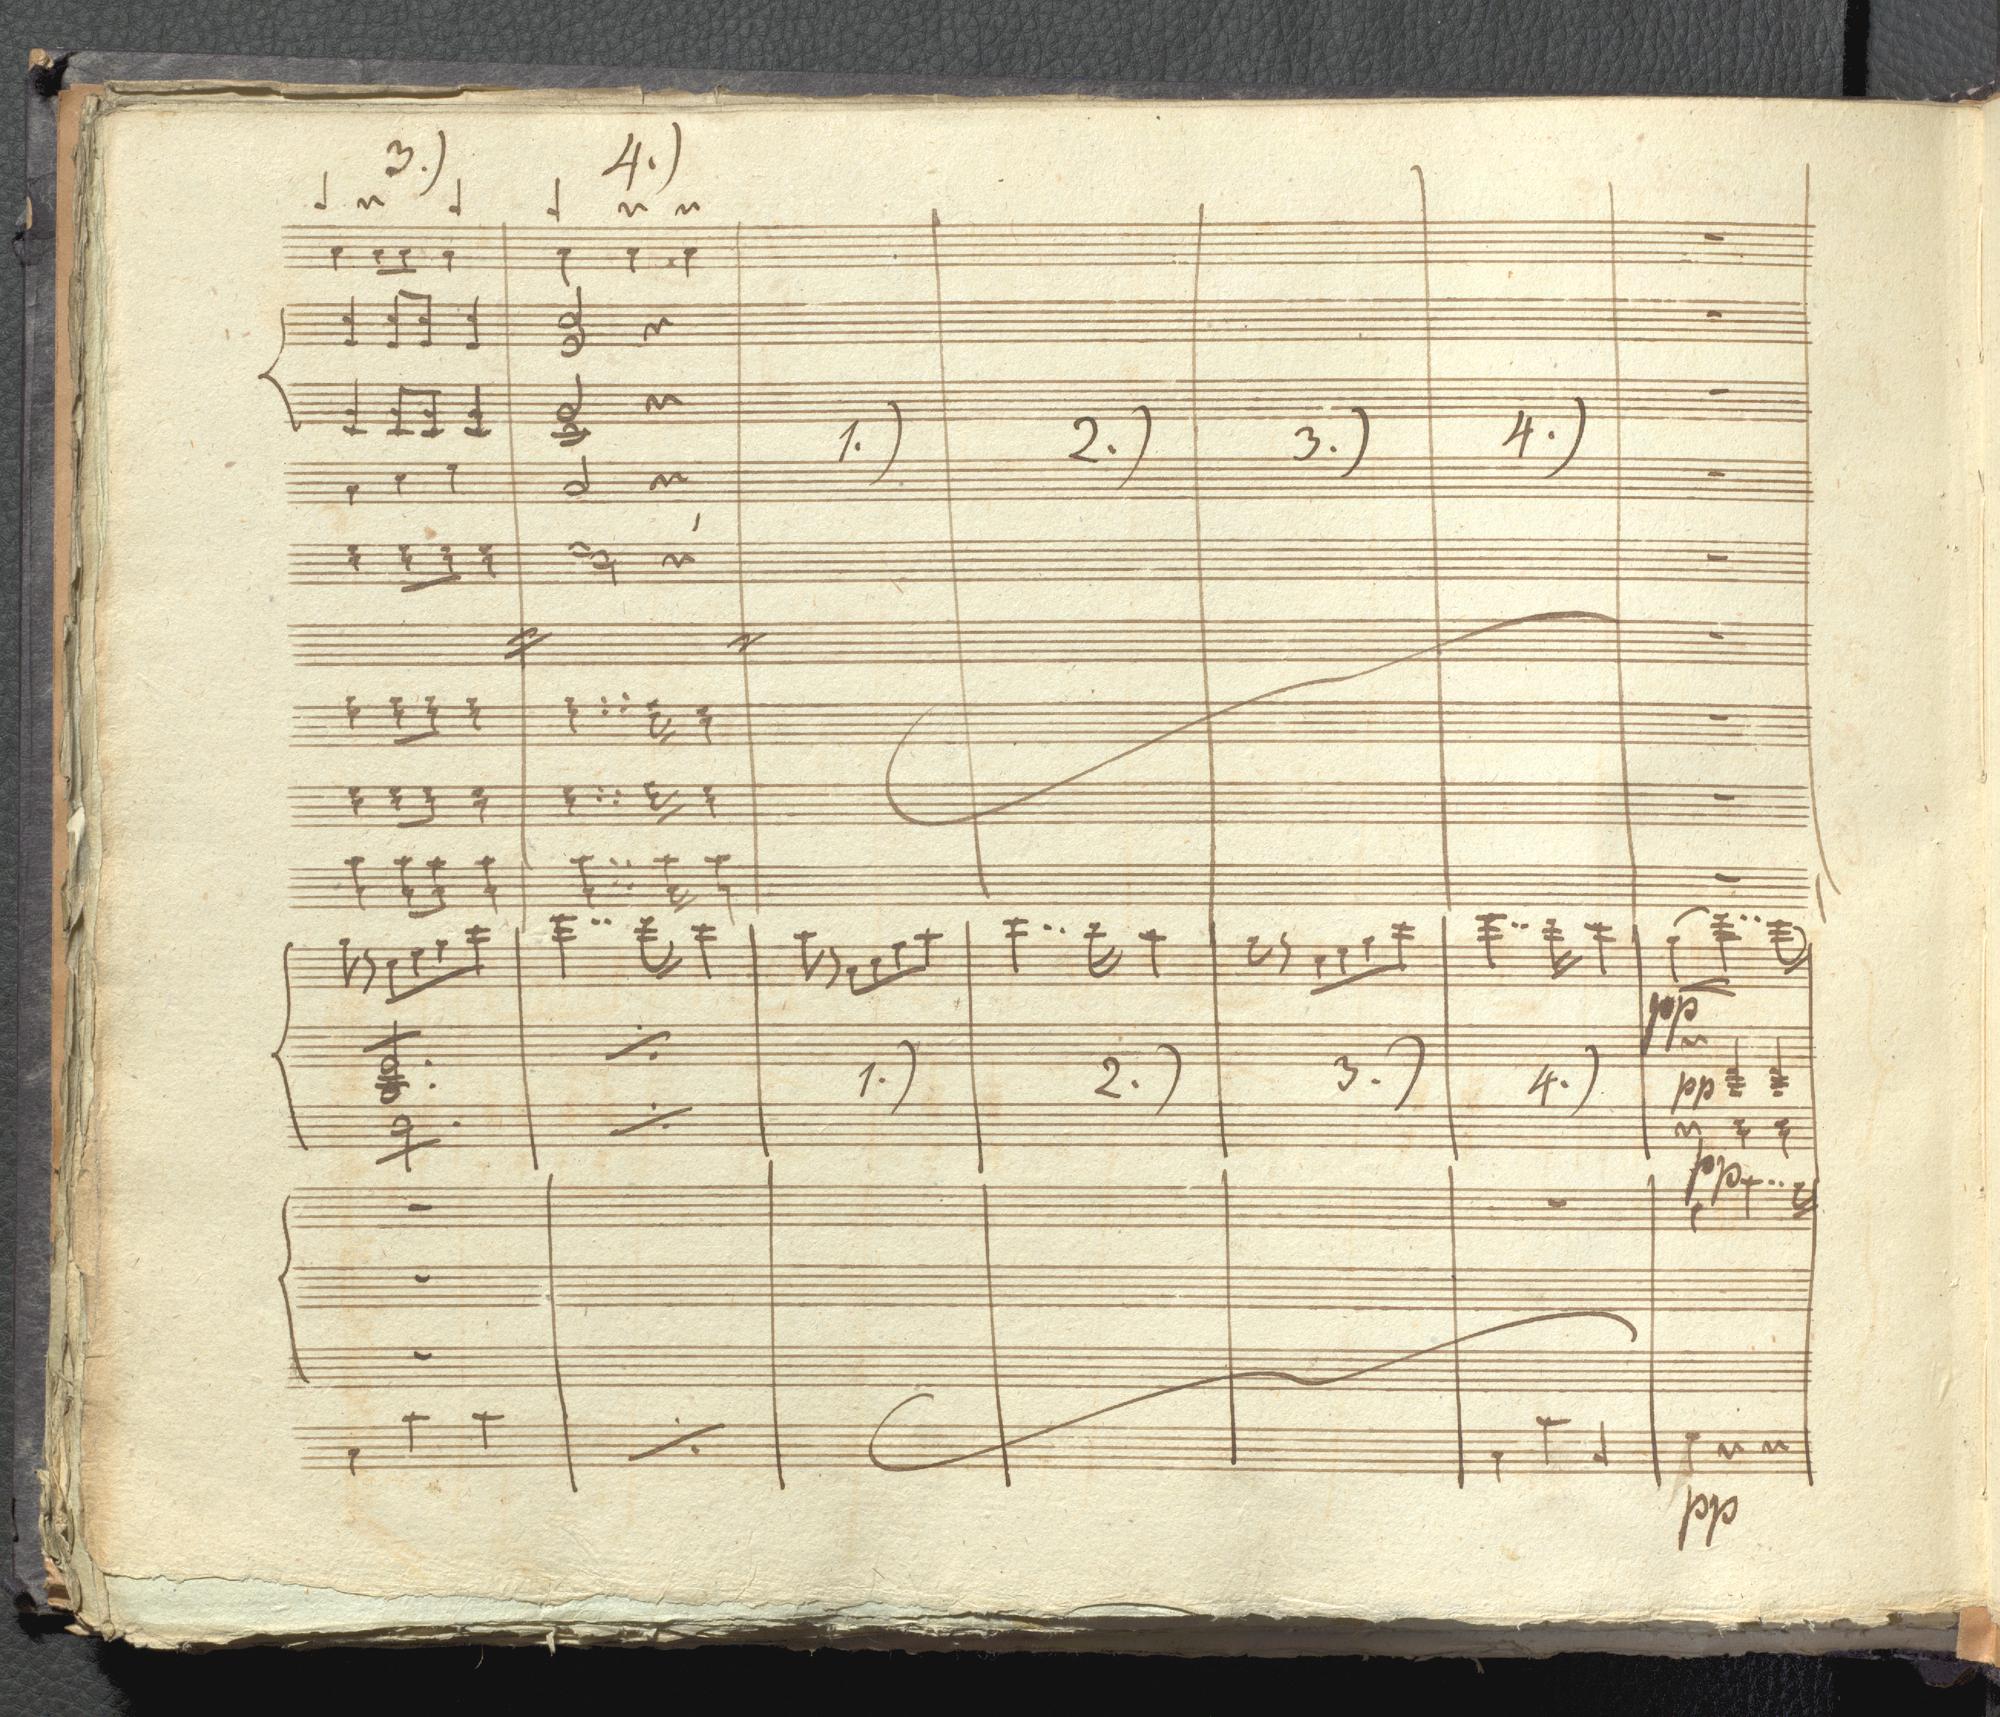 3.) 4.)
1.) 2.) 3.) 4.)
pp
1.) 2.) 3.) 4.)
pp
pp
pp